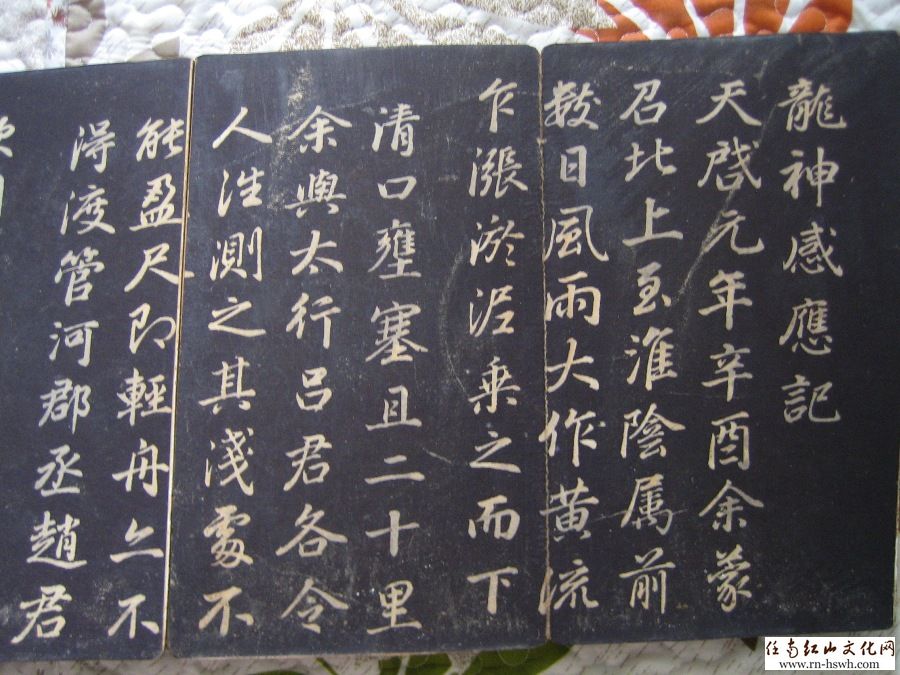 龍神感應記
天啓元年辛酉余蒙
召北上至淮陰属前
数日風雨大作黄流
乍漲淤泥乗之而下
清口壅塞且二十里
余與太行吕君各令
人往測之其淺處不
能盈尺即輕舟亦不
得渡管河郡丞趙君
任南红山文化网
www.rn-hswh.com